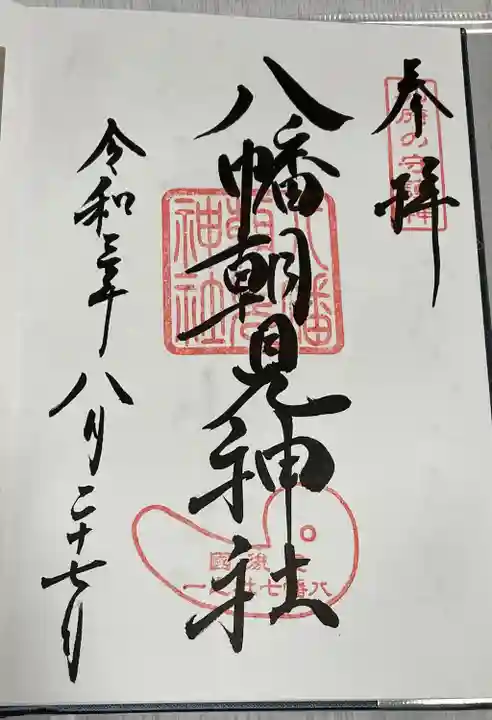 奉拝
八幡朝見神社
令和三年八月二十七日
の守護神
八幡朝見神社
豊後國
八幡七社之一